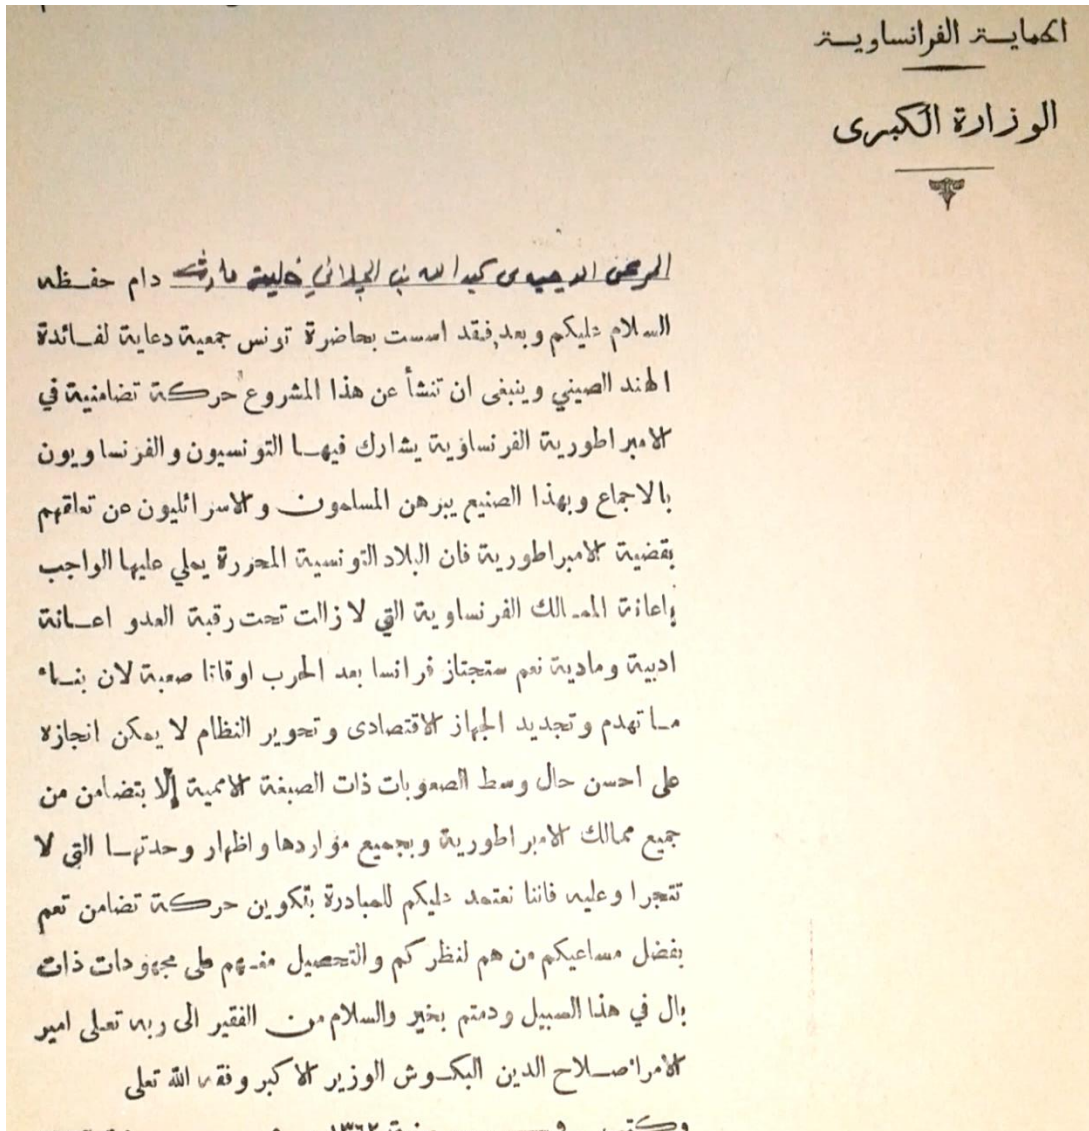 الحماية الفرانساوية
الوزارة الكبرى
دام حفظه
السلام عليكم وبعد فقد اسست بحاضرة تونس جمعية دعاية لفائدة
الهند الصيني وينبغى ان تنشأ عن هذا المشروع حركة تضامنية في
الامبراطورية الفرنساوية يشارك فيها التونسيون والفرنساويون
بالاجماع وبهذا الصنيع يبرهن المسلمون والاسرائليون عن تعلقهم
بقضية الامبراطورية فان البلاد التونسية المحررة يملي عليها الواجب
إعانة الممالك الفرنساوية التي لا زالت تحت رقبة العدو اعانة
ادبية ومادية نعم ستجتاز فرانسا بعد الحرب اوقاتا صعبة لان بناء
ما تهدم وتجديد الجهاز الاقتصادى وتحوير النظام لا يمكن انجازه
على احسن حال وسط الصعوبات ذات الصبغة الاممية إلا بتضامن من
جميع ممالك الامبراطورية وبجميع مواردها واظهار وحدتها التي لا
تتجرا وعليه فاننا نعتمد عليكم للمبادرة بتكوين حركة تضامن تعم
بفضل مساعيكم من هم لنظركم والتحصيل منهم على مجهودات ذات
بال في هذا السبيل ودمتم بخير والسلام من الفقير الى ربه تعلى امير
الامرا صلاح الدين البكوش الوزير الاكبر وفقه الله تعلى